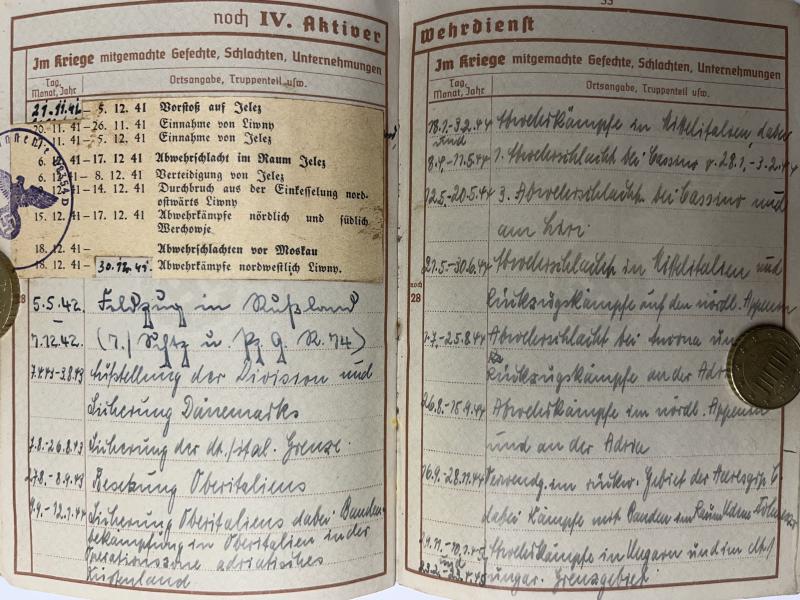 noch IV. Aktiver
Im Kriege mitgemachte Gefechte, Schlachten, Unternehmungen
Tag, Monat, Jahr
Ortsangabe, Truppenteil usw.
21.11.41 – 5. 12. 41 Vorstoß auf Jelez
20. 11. 41 – 26. 11. 41 Einnahme von Liwny
11. 41 – 5. 12. 41 Einnahme von Jelez
6. 12. 41 – 17. 12. 41 Abwehrschlacht im Raum Jelez
6. 12. 41 – 8. 12. 41 Verteidigung von Jelez
12. 41 – 14. 12. 41 Durchbruch aus der Einkesselung nord-
ostwärts Liwny
15. 12. 41 – 17. 12. 41 Abwehrkämpfe nördlich und südlich
Werchowje
18. 12. 41 – Abwehrschlachten vor Moskau
18. 12. 41 – 30.12.41. Abwehrkämpfe nordwestlich Liwny.
28
5.5.42. Feldzug in Rußland
–
7.12.42. (7./Schtz u. Pz. G. R. 74)
7.4.43-3.8.43 Aufstellung der Division und
Sicherung Dänemarks
7.8.-26.8.43 Sicherung der dt./ital. Grenze.
27.8.-8.9.43 Besetzung Oberitaliens
9.9.- Sicherung Oberitaliens dabei Banden-
bekämpfung in Oberitalien in der
Operationszone adriatisches
Küstenland
33
Wehrdienst
Im Kriege mitgemachte Gefechte, Schlachten, Unternehmungen
Tag, Monat, Jahr
Ortsangabe, Truppenteil usw.
18.1.-3.2.44 Abwehrkämpfe in Mittelitalien, dabei
und
8.4.-11.5.44 1. Abwehrschlacht bei Cassino v. 28.1.-3.2.44
12.5.-20.5.44 3. Abwehrschlacht bei Cassino und
am Liri
21.5.-30.6.44 Abwehrschlacht in Mittelitalien und
noch 28
Rückzugskämpfe auf den nördl. Apennin
1.7.-25.8.44 Abwehrschlacht bei Ancona und
Rückzugskämpfe an der Adria
26.8.-15.9.44 Abwehrkämpfe im nördl. Apennin
und an der Adria
16.9.-28.11.44 Verwendg. im rückw. Gebiet der Heeresgrp. C
dabei Kämpfe mit Banden im Raum Udine-
Abwehrkämpfe in Ungarn und im dt./
und
ungar. Grenzgebiet.